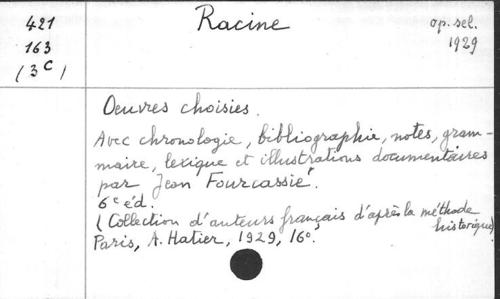 421
163
(3c)
Racine
op. sel.
1929
Oeuvres choisies.
Avec chronologie, bibliographie, notes, gram-
maire, lexique et illustrations documentaires
par Jean Fourcassié.
6e éd.
(Collection d'auteurs français d'après la méthode
historique)
Paris, A. Hatier, 1929, 16°.